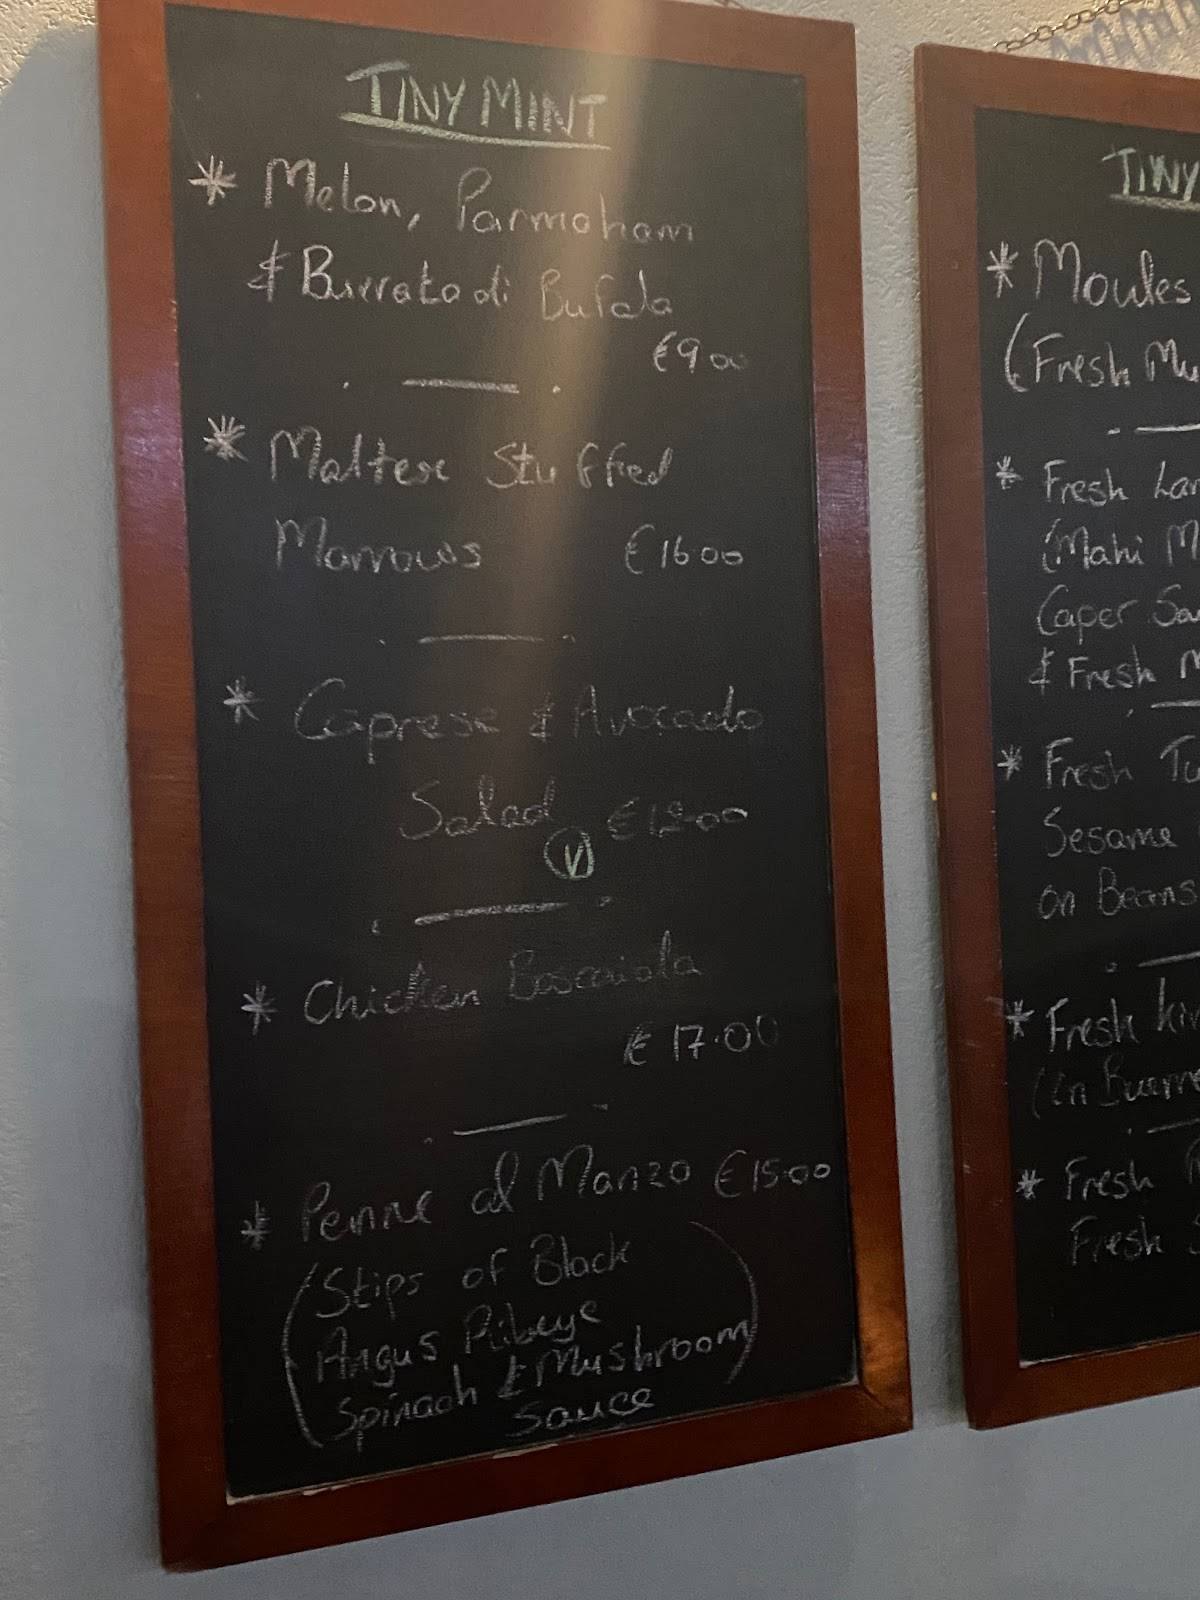 TINY MINT
* Melon, Parmaham
& Burrata di Bufala
€9.00
* Maltese Stuffed
Marrows €16.00
* Caprese & Avocado
Salad €12.00
V
* Chicken Boscaiola
€17.00
* Penne al Manzo €15.00
(Stips of Black
Angus Ribeye
Spinach & Mushroom)
Sauce
TINY
* Moules
(Fresh Mu
* Fresh Lam
(Mahi M
Caper Sau
& Fresh M
* Fresh Tu
Sesame
on Beans
* Fresh
(In
* Fresh
Fresh